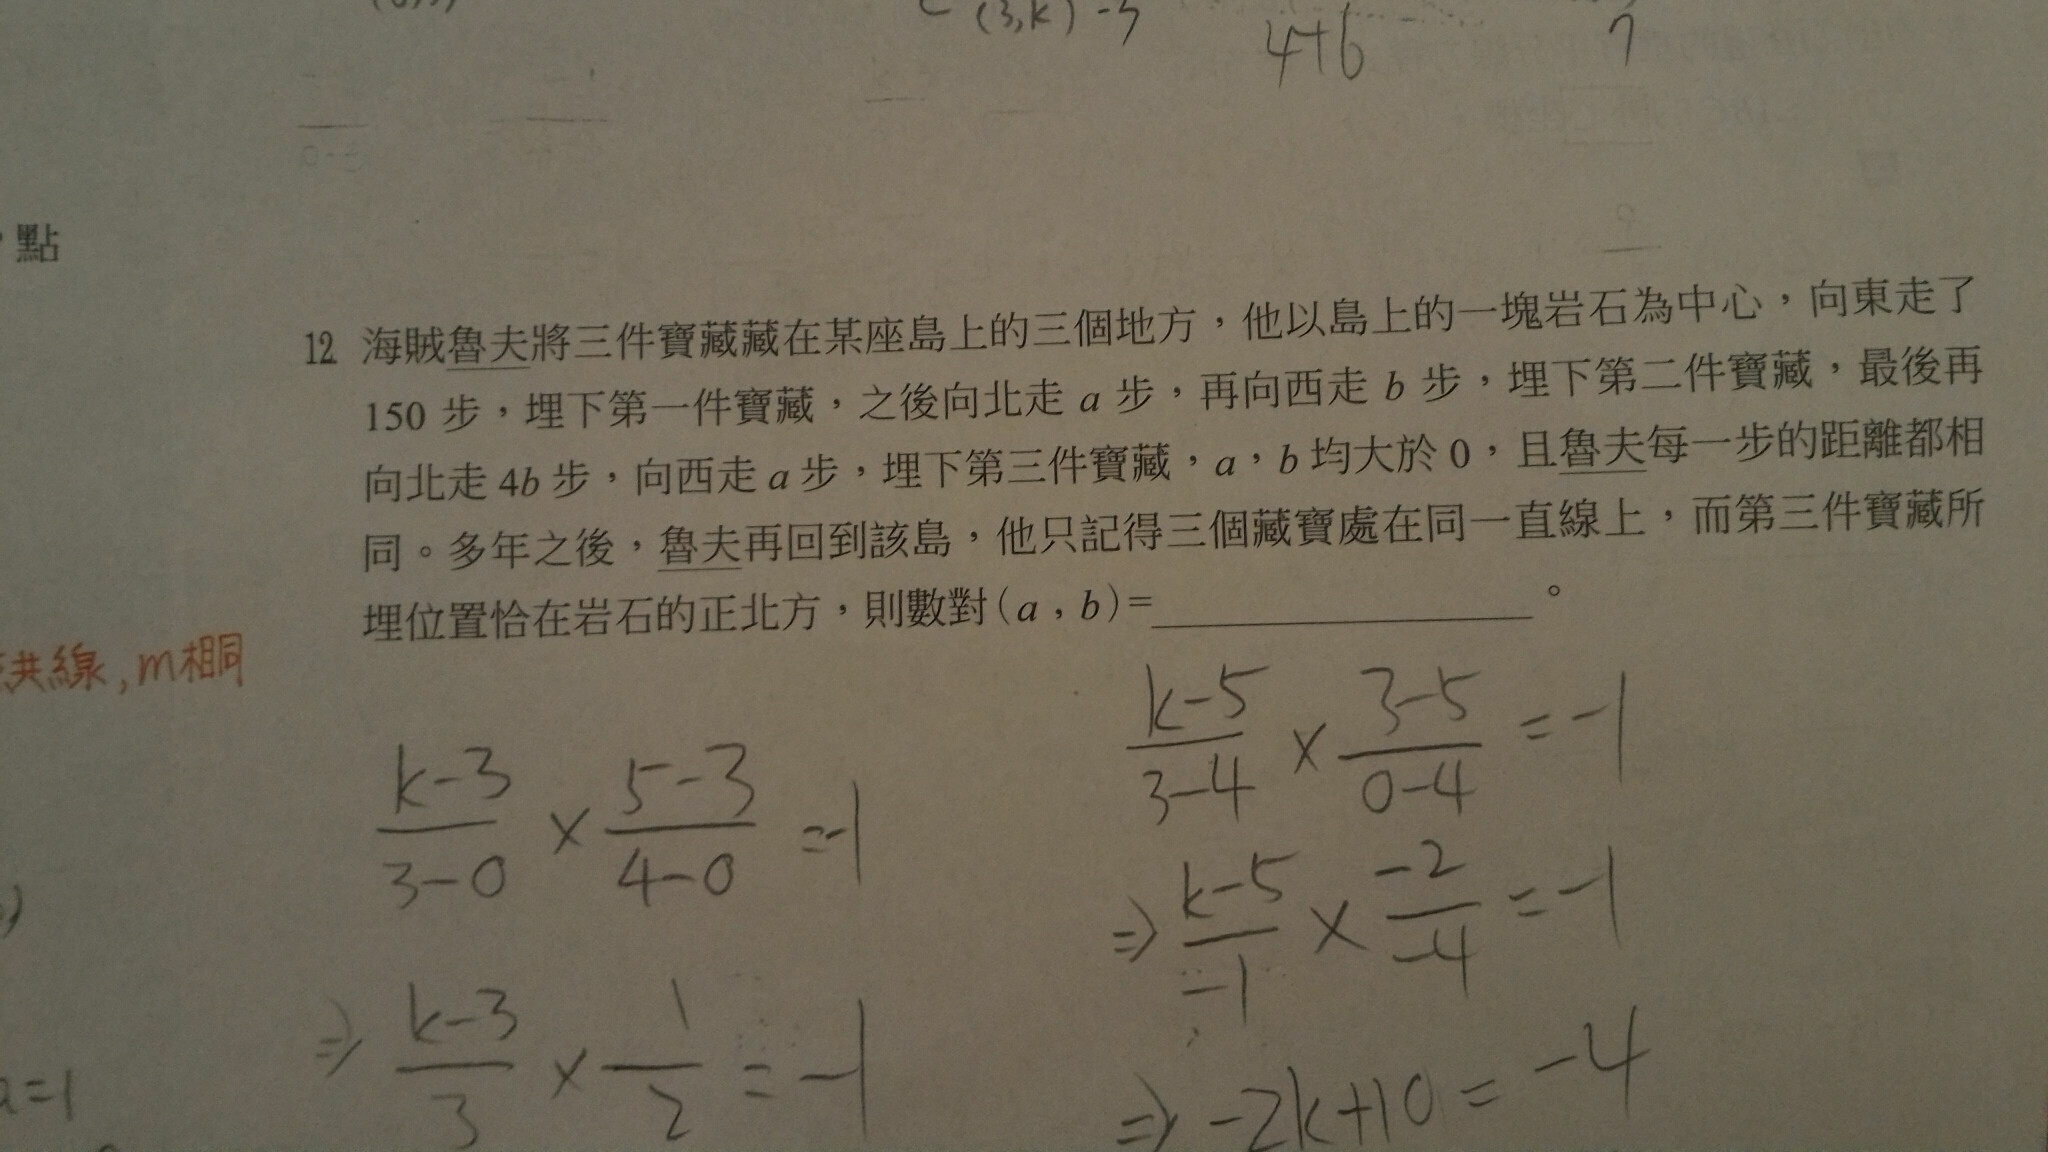 (3,k) -5
4+6
7
點
12 海賊魯夫將三件寶藏藏在某座島上的三個地方，他以島上的一塊岩石為中心，向東走了
150 步，埋下第一件寶藏，之後向北走 a 步，再向西走 b 步，埋下第二件寶藏，最後再
向北走 4b 步，向西走 a 步，埋下第三件寶藏，a，b 均大於 0，且魯夫每一步的距離都相
同。多年之後，魯夫再回到該島，他只記得三個藏寶處在同一直線上，而第三件寶藏所
埋位置恰在岩石的正北方，則數對(a，b)=＿＿＿＿＿＿。
共線, m相同
k-3/3-0 × 5-3/4-0 = -1
⇒ k-3/3 × 1/2 = -1
k-5/3-4 × 3-5/0-4 = -1
⇒ k-5/-1 × -2/-4 = -1
⇒ -2k+10 = -4
=1